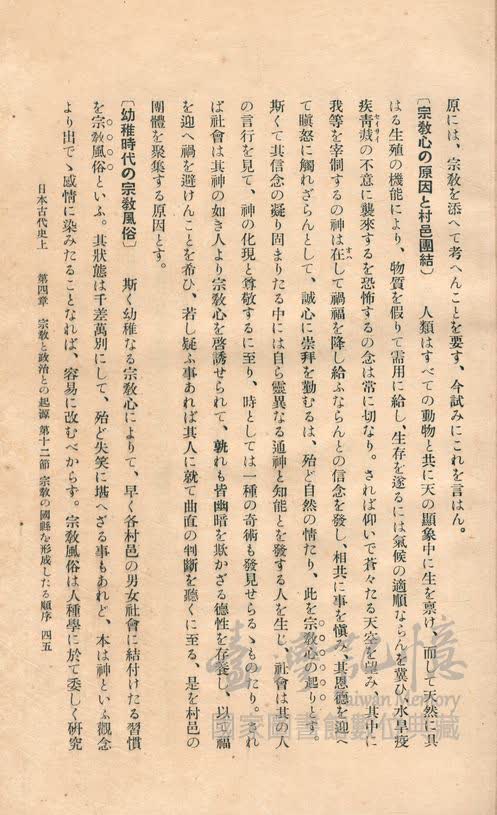 原には、宗敎を添へて考へんことを要す、今試みにこれを言はん。
〔宗敎心の原因と村邑團結〕　人類はすべての動物と共に天の顯象中に生を禀け、而して天然に具
はる生殖の機能により、物質を假りて需用に給し、生存を遂るには氣候の適順ならんを冀ひ、水旱疫
疾眚烖の不意に襲來するを恐怖するの念は常に切なり。されば仰いで蒼々たる天空を望み、其中に
我等を宰制するの神は在して禍福を降し給ふならんとの信念を發し、相共に事を愼み、其恩德を迎へ
て瞋怒に觸れざらんとして、誠心に崇拜を勤むるは、殆ど自然の情たり、此を宗敎心の起りとす。
斯くて其信念の凝り固まりたる中には自ら靈異なる通神と知能とを發する人を生じ、社會は其の人
の言行を見て、神の化現と尊敬するに至り、時としては一種の奇術も發見せらるゝものたり。され
ば社會は其神の如き人より宗敎心を啓誘せられて、孰れも皆幽暗を欺かざる德性を存養し、以て福
を迎へ禍を避けんことを希ひ、若し疑ふ事あれば其人に就て曲直の判斷を聽くに至る、是を村邑の
團體を聚集する原因とす。
〔幼稚時代の宗敎風俗〕　斯く幼稚なる宗敎心によりて、早く各村邑の男女社會に結付けたる習慣
を宗敎風俗といふ。其狀態は千差萬別にして、殆ど失笑に堪へざる事もあれど、本は神といふ觀念
より出でゝ感情に染みたることなれば、容易に改むべからず。宗敎風俗は人種學に於て委しく硏究
日本古代史上　第四章　宗敎と政治との起源　第十二節　宗敎の國縣を形成したる順序　四五
臺灣記憶
Taiwan Memory
國家圖書館數位典藏